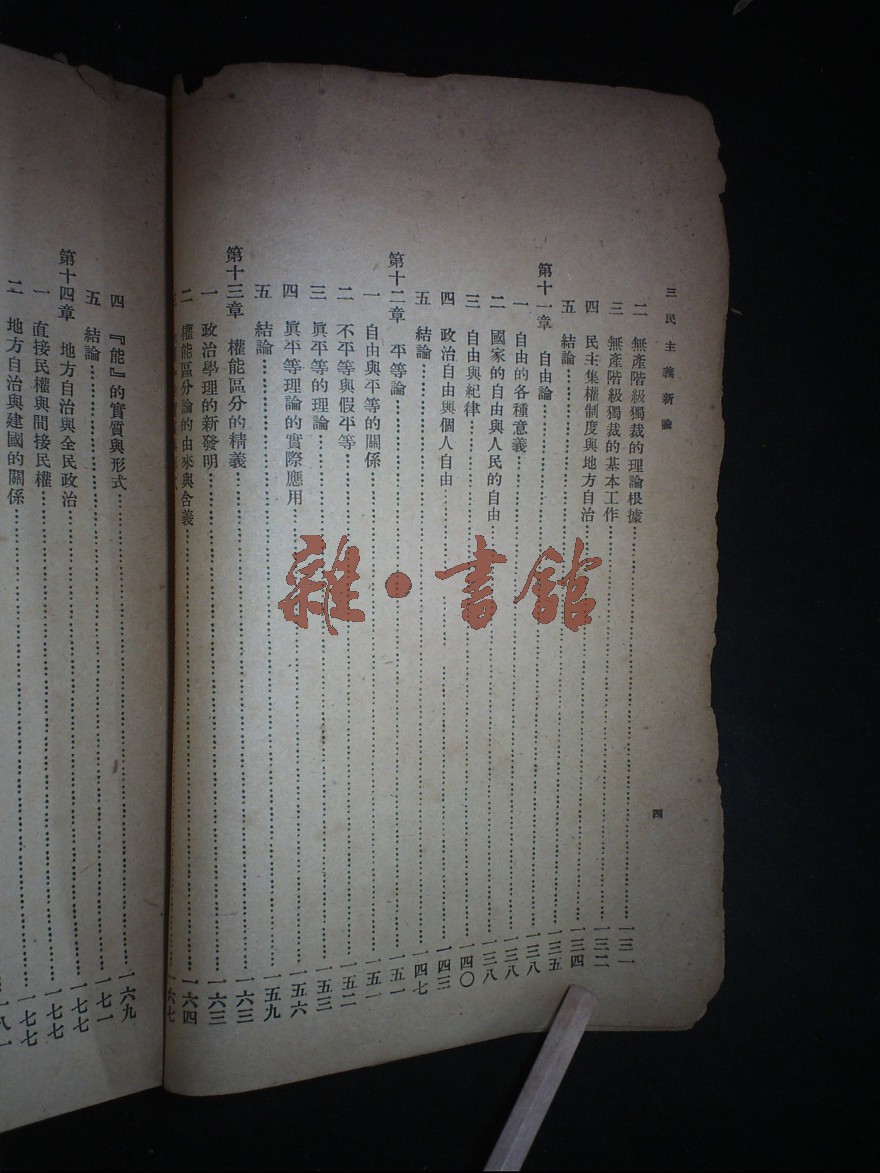 三民主義新論
四
二 無產階級獨裁的理論根據 一三一
三 無產階級獨裁的基本工作 一三二
四 民主集權制度與地方自治 一三四
五 結論 一三五
第十一章 自由論 一三八
一 自由的各種意義 一三八
二 國家的自由與人民的自由 一三八
三 自由與紀律 一四〇
四 政治自由與個人自由 一四三
五 結論 一四七
第十二章 平等論 一五一
一 自由與平等的關係 一五一
二 不平等與假平等 一五二
三 眞平等的理論 一五三
四 眞平等理論的實際應用 一五六
五 結論 一五九
第十三章 權能區分的精義 一六三
一 政治學理的新發明 一六三
二 權能區分論的由來與含義 一六四
一六七
四 『能』的實質與形式 一六九
五 結論 一七一
第十四章 地方自治與全民政治 一七七
一 直接民權與間接民權 一七七
二 地方自治與建國的關係 一七七
雜·書館